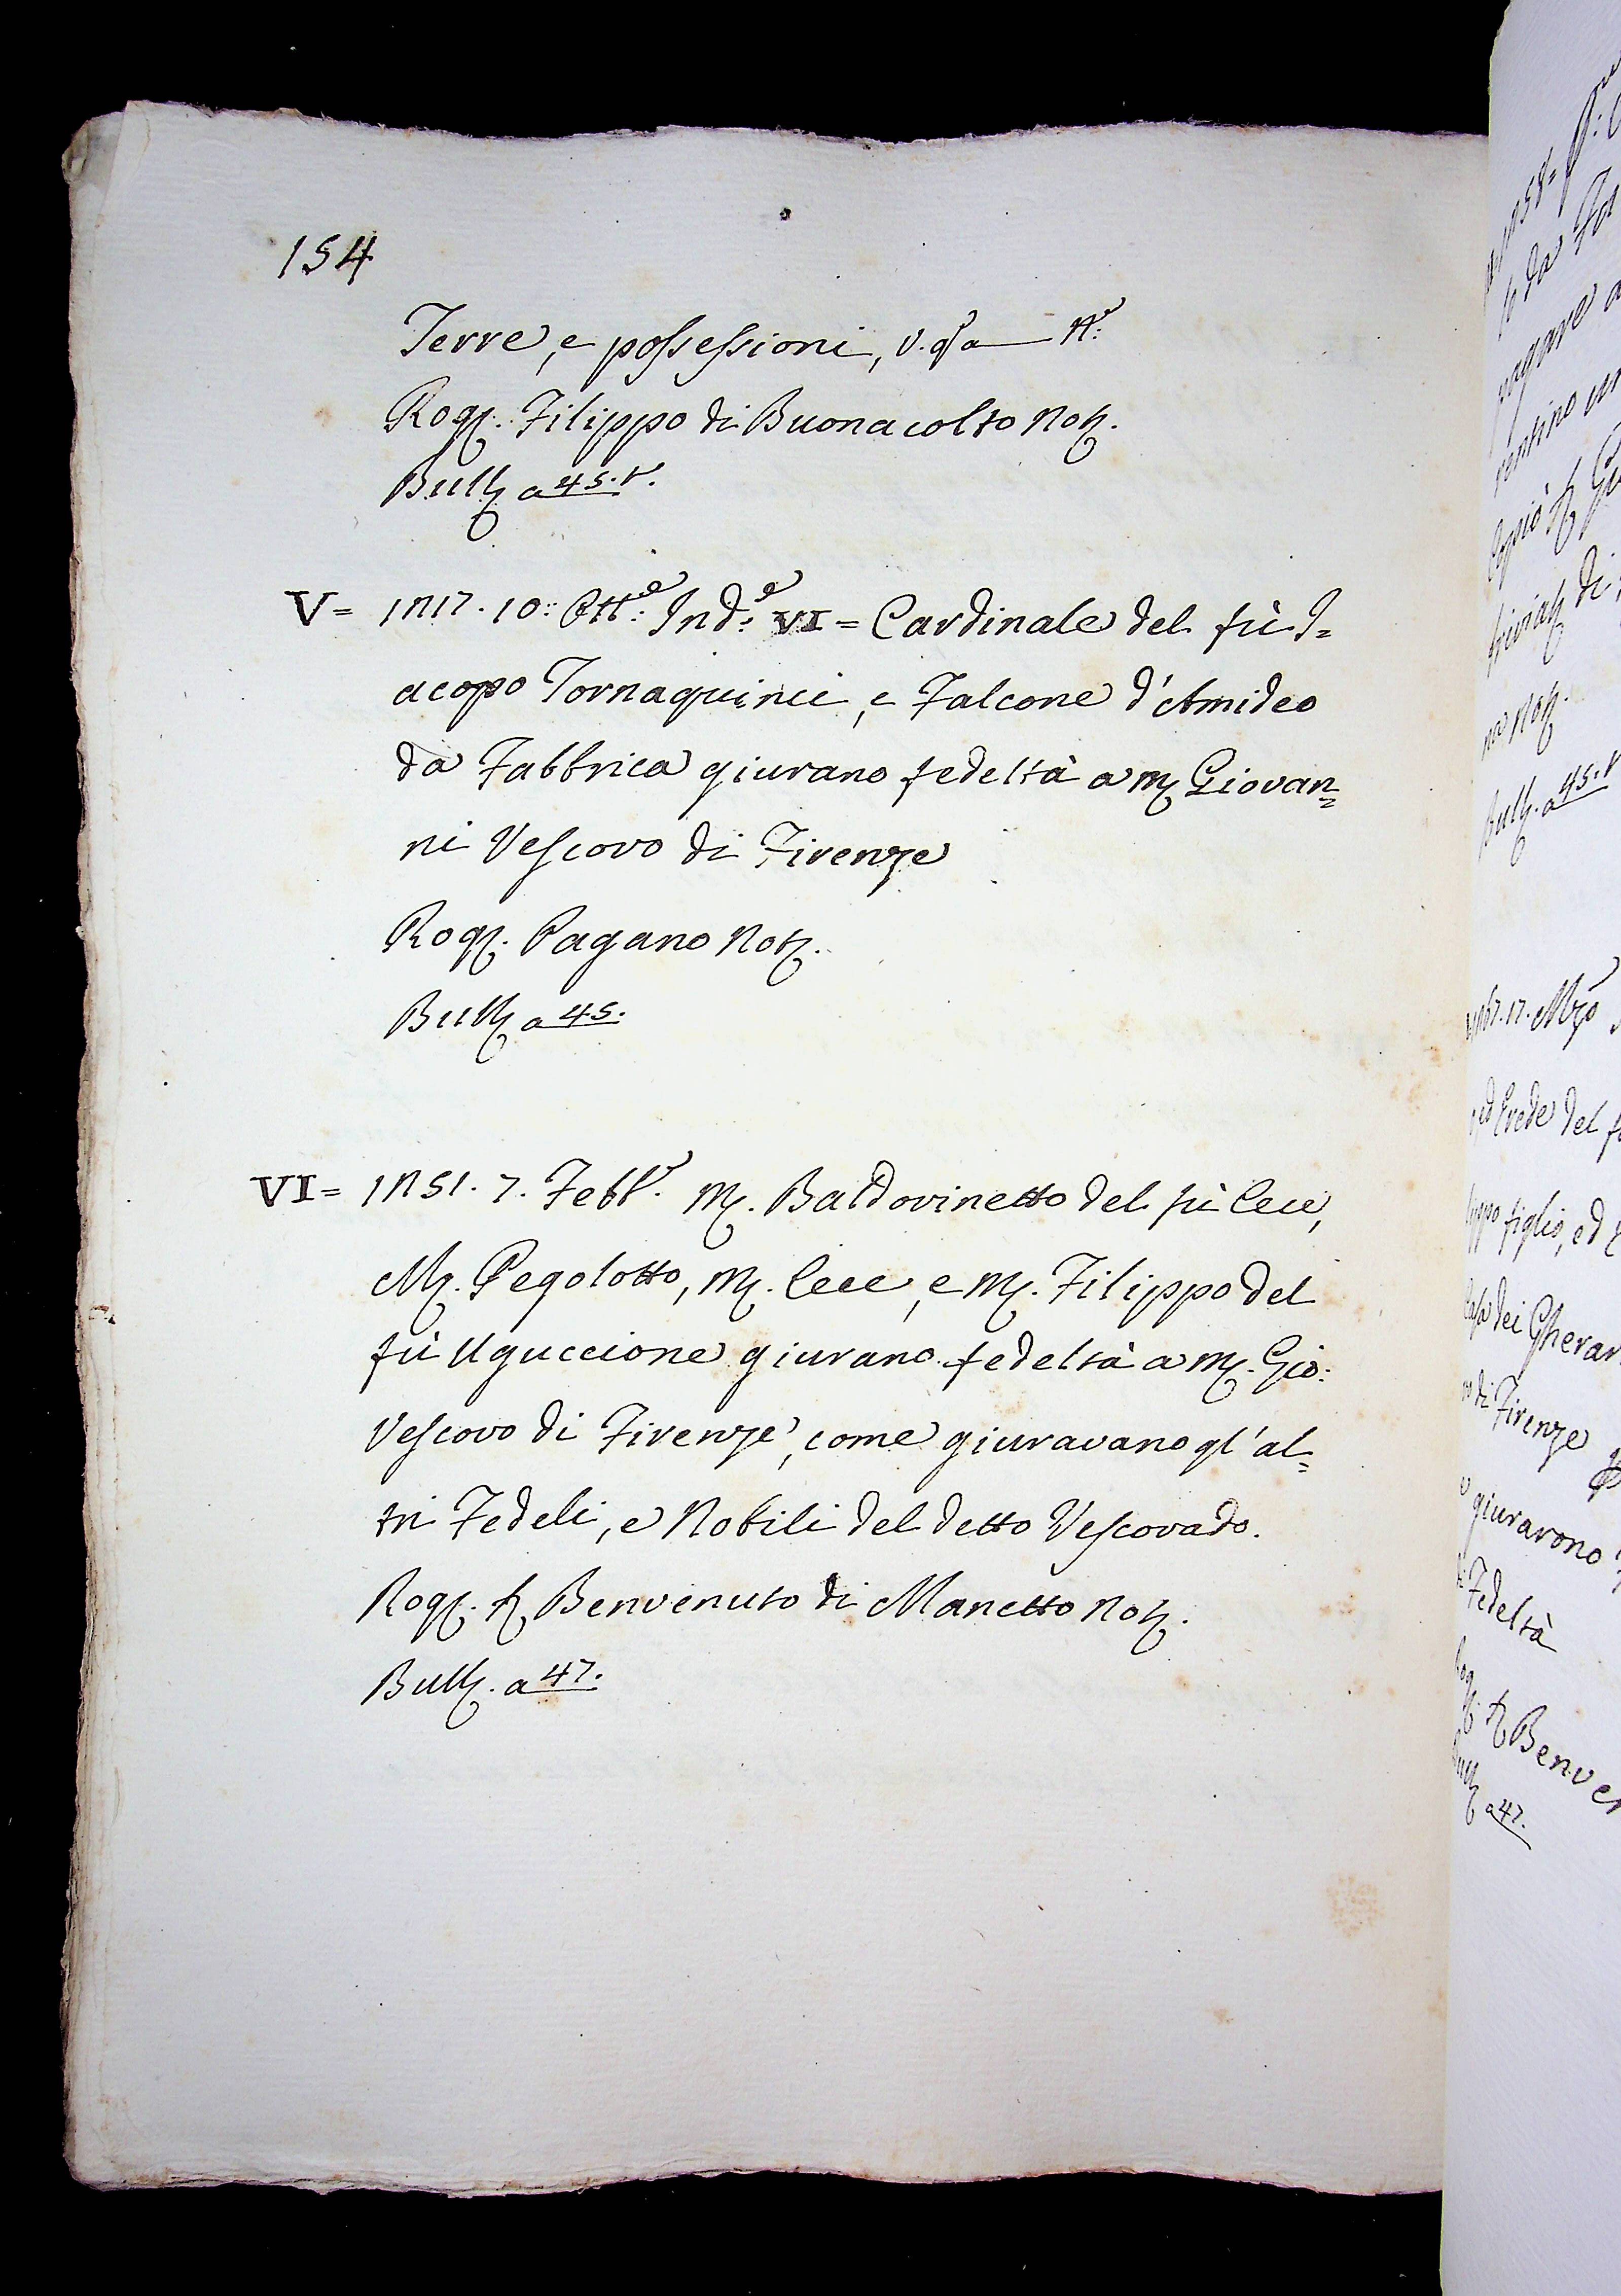 154
Terre, e possessioni, v. qa — N.
Rogo. Filippo di Buonacolto Noto.
Bullo a 45. v.
V= 1217. 10: Ott.e Ind.e VI = Cardinale del fù I=
acopo Tornaquinci, e Falcone d'Amideo
da Fabbrica giurano fedeltà a M. Giovan=
ni Vescovo di Firenze
Rog. Pagano Not.
Bull. a 45.
VI= 1251. 7. Febb. M. Baldovinetto del fù Cece,
M. Pegolotto, M. Cece, e M. Filippo del
fù Uguccione giurano fedeltà a M. Gio:
Vescovo di Firenze, come giuravano gl'al=
tri Fedeli, e Nobili del detto Vescovado.
Rog. Benvenuto di Manetto Not.
Bull. a 47.
pagare
Not.
Bull. a 45. v
17. Mzo
Erede del
figlio, ed
dei Gherar
di Firenze
giurarono
Fedeltà
Benven
a 47.